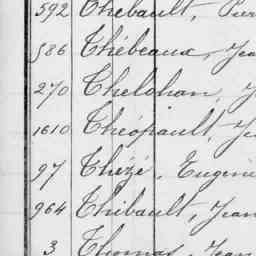 592 Thebault, Pier
586 Thébeaux, Jea
270 Thelohan, J
1610 Théopault, Je
97 Thézé, Eugène
964 Thibault, Jean
3 Thomas, Jean